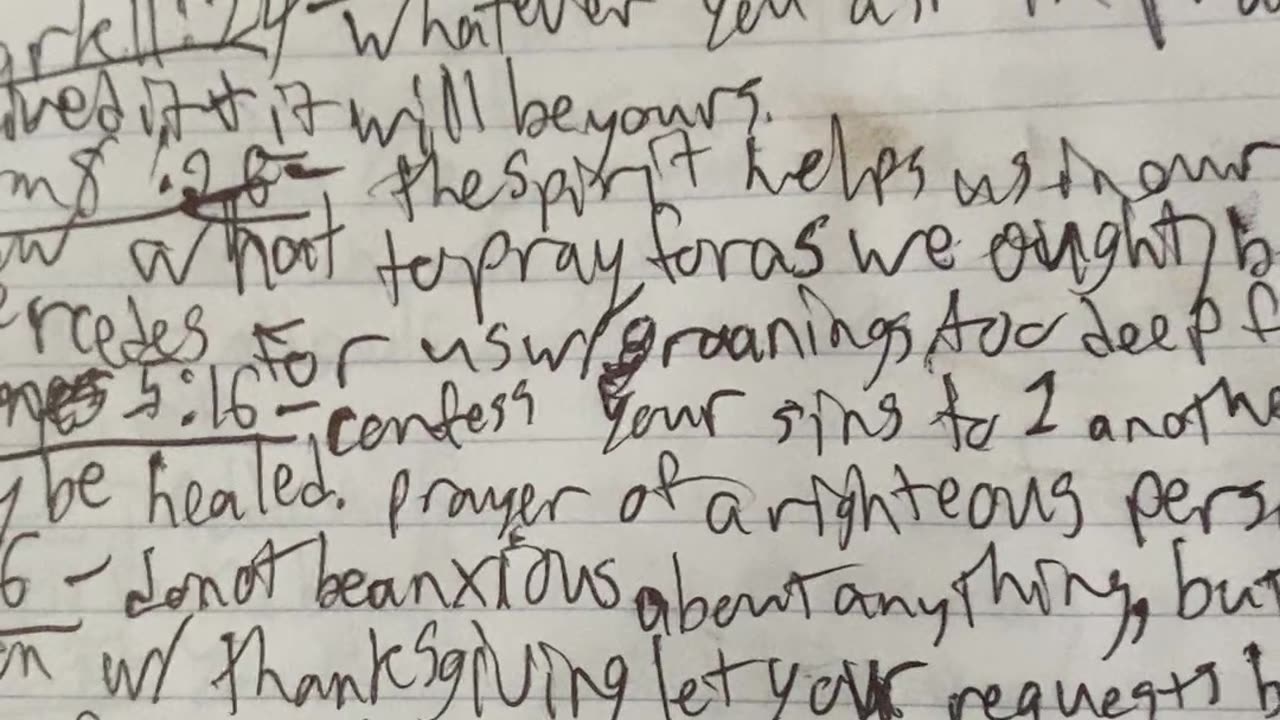 ark 11:24 - whatever you a
ived it + it will be yours.
m 8:26 - the Spirit helps us in our
w what to pray for as we ought, b
ercedes for us w/ groanings too deep f
mes 5:16 - confess your sins to 1 anothe
y be healed. prayer of a righteous pers
6 - do not be anxious about anything, but
on w/ thanksgiving let your requests b